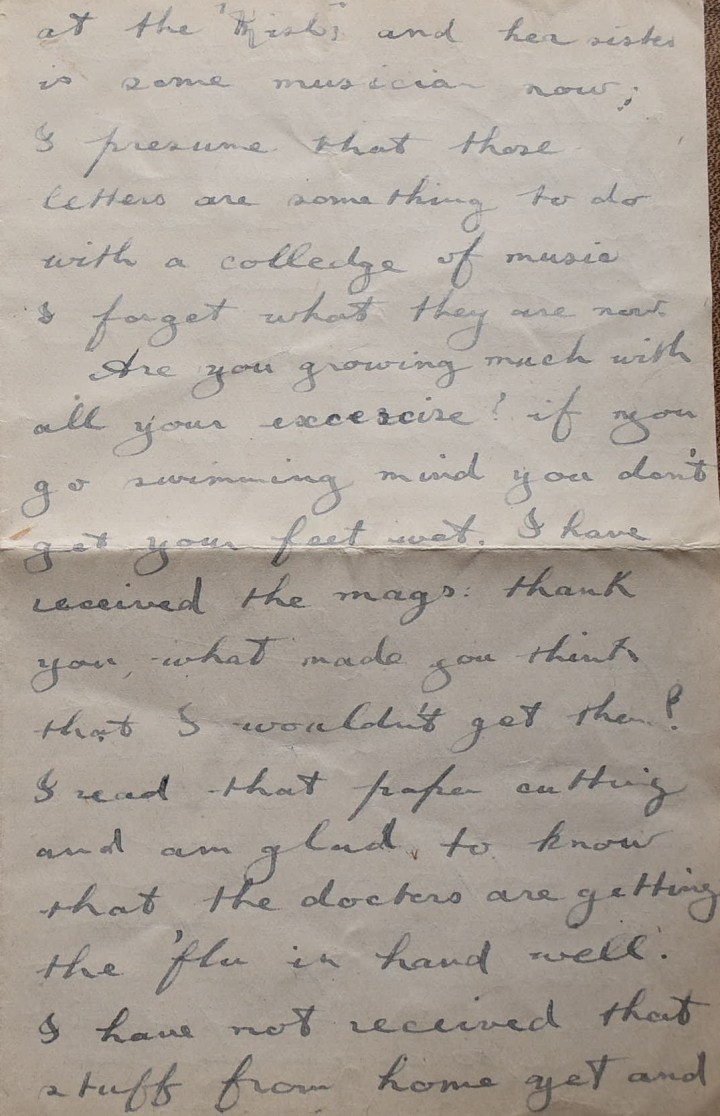 at the and her sister
is some musician now;
I presume that those
letters are something to do
with a colledge of music
I forget what they are now.
Are you growing much with
all your excescise? if you
go swimming mind you don't
get your feet wet. I have
received the mags: thank
you, what made you think
that I wouldn't get them?
I read that paper cutting
and am glad, to know
that the doctors are getting
the 'flu in hand well.
I have not received that
stuff from home yet and